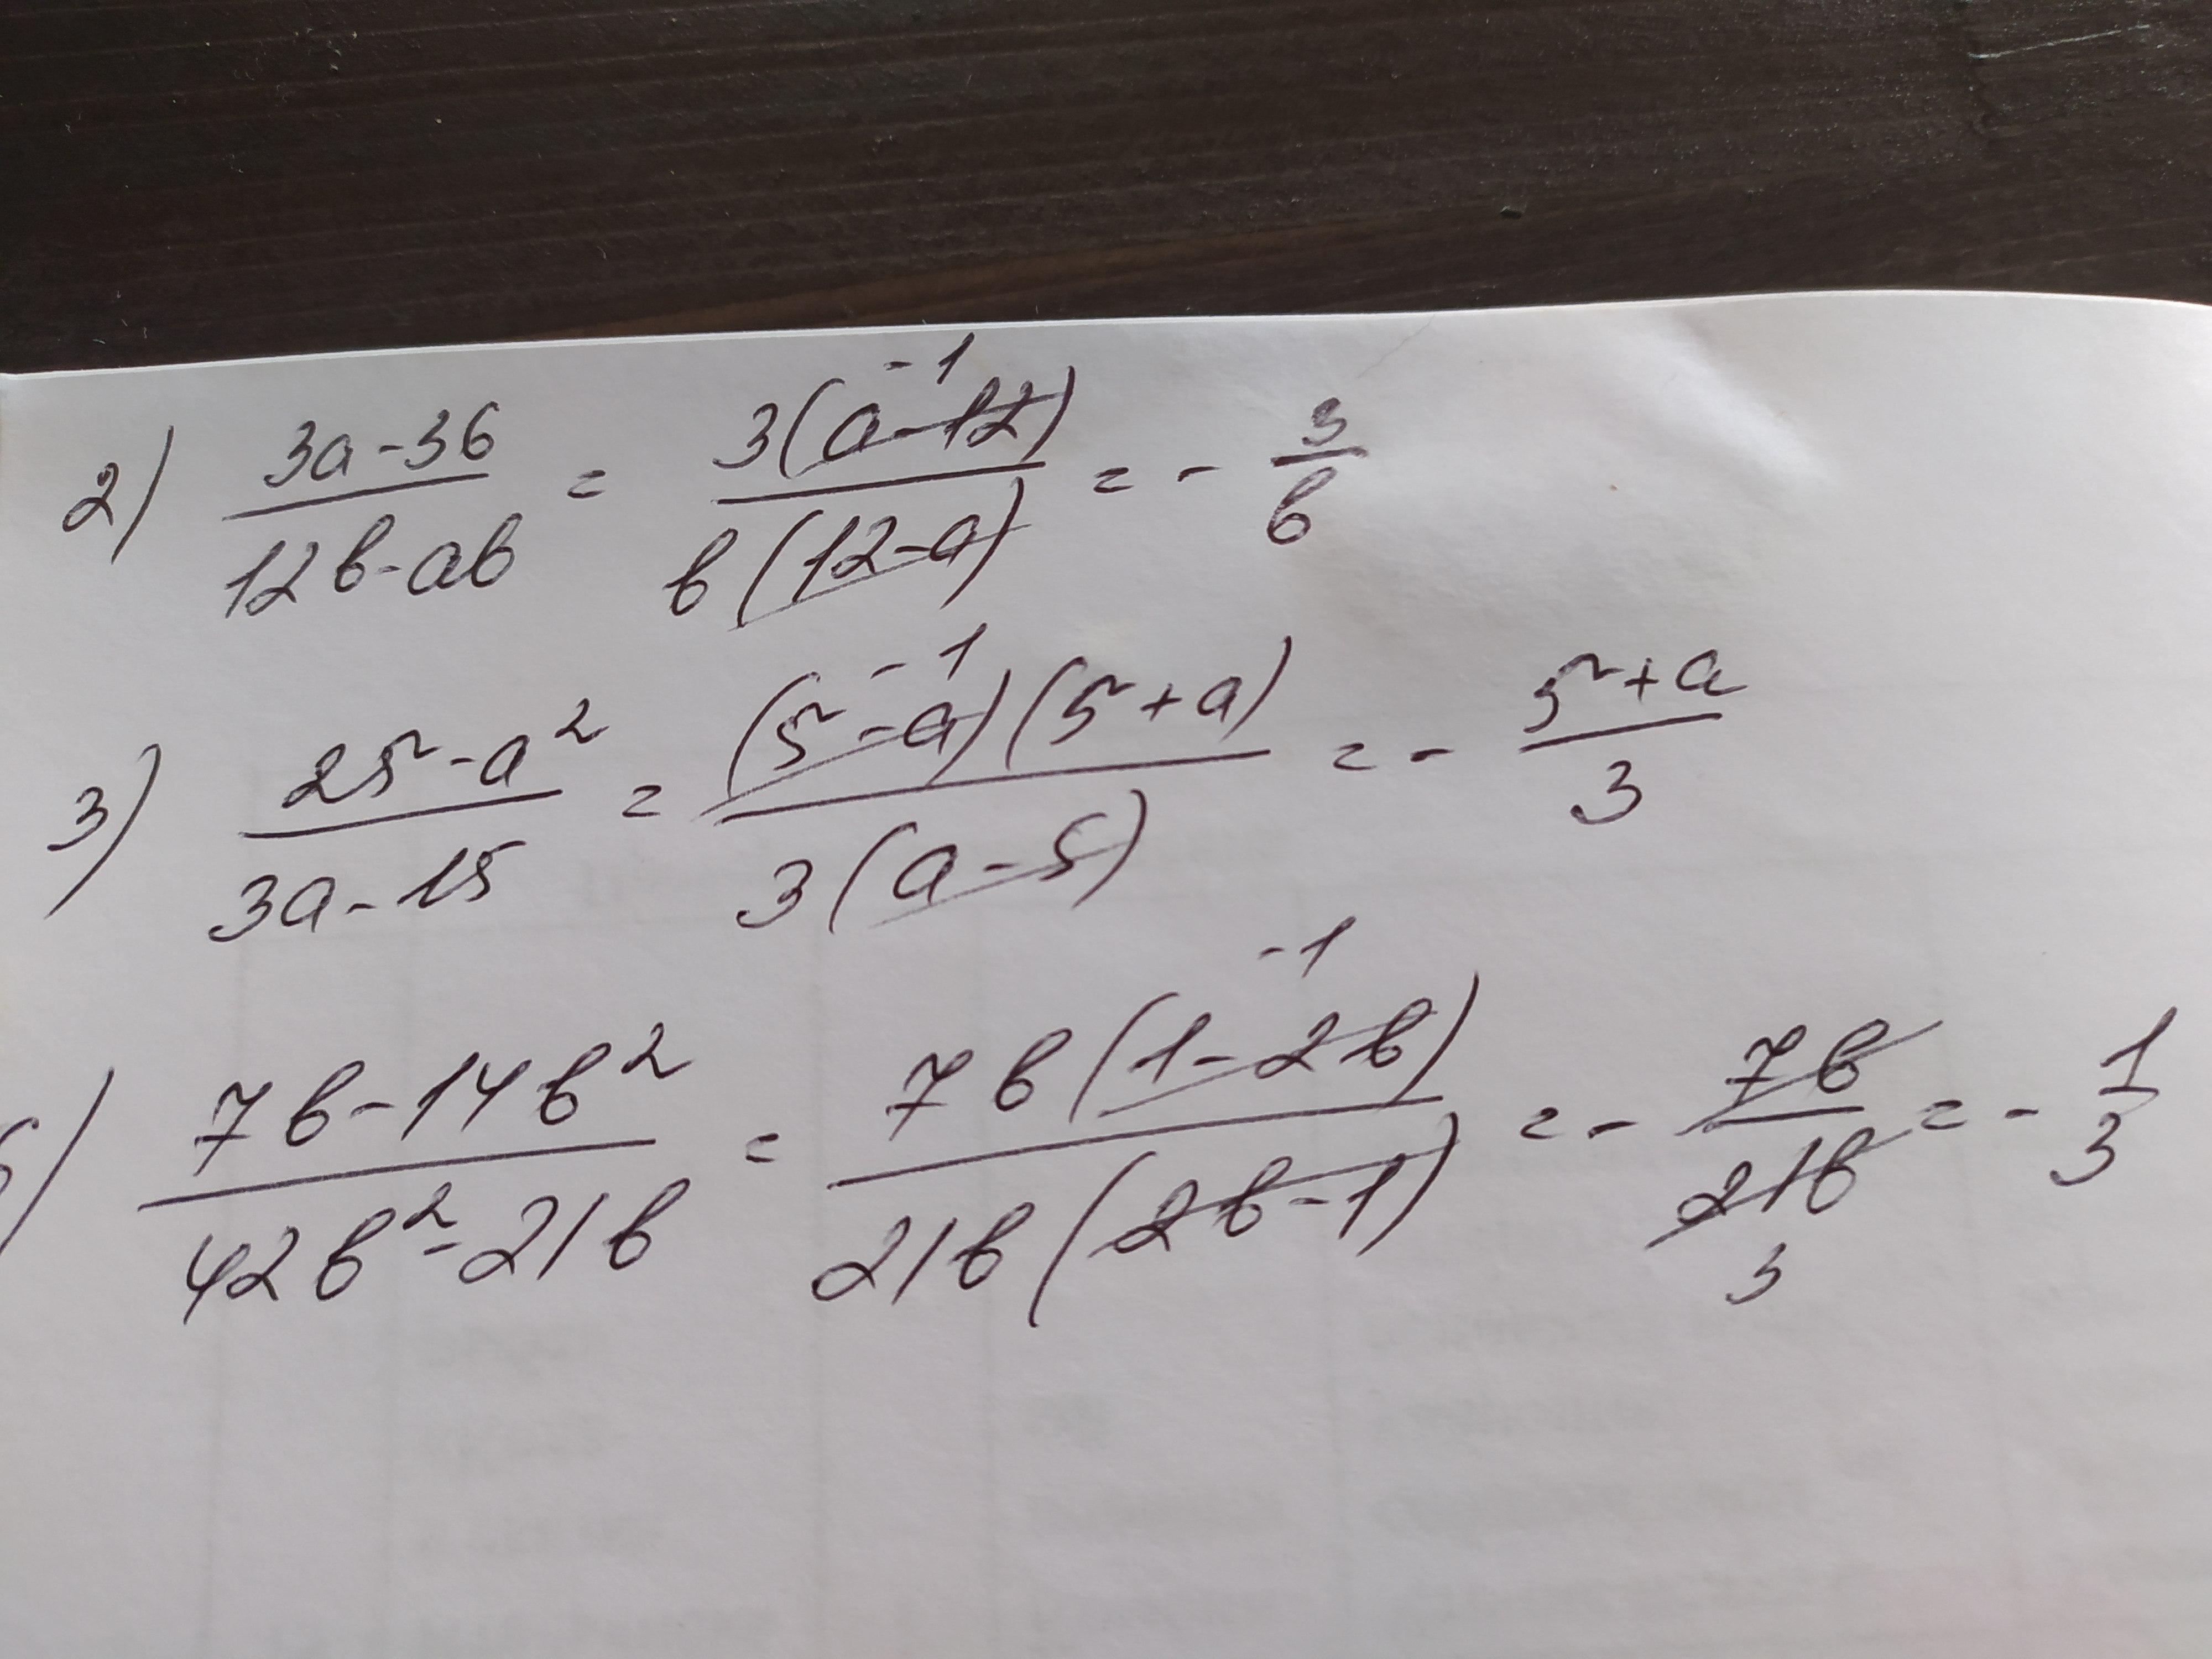 2) (3a-36)/(12b-ab) = 3(a-12)^-1/b(12-a) = - 3/b
3) (25-a²)/(3a-15) = (5-a)^-1(5+a)/3(a-5) = - (5+a)/3
) (7b-14b²)/(42b²-21b) = 7b(1-2b)^-1/21b(2b-1) = - 7b/21b 3 = - 1/3